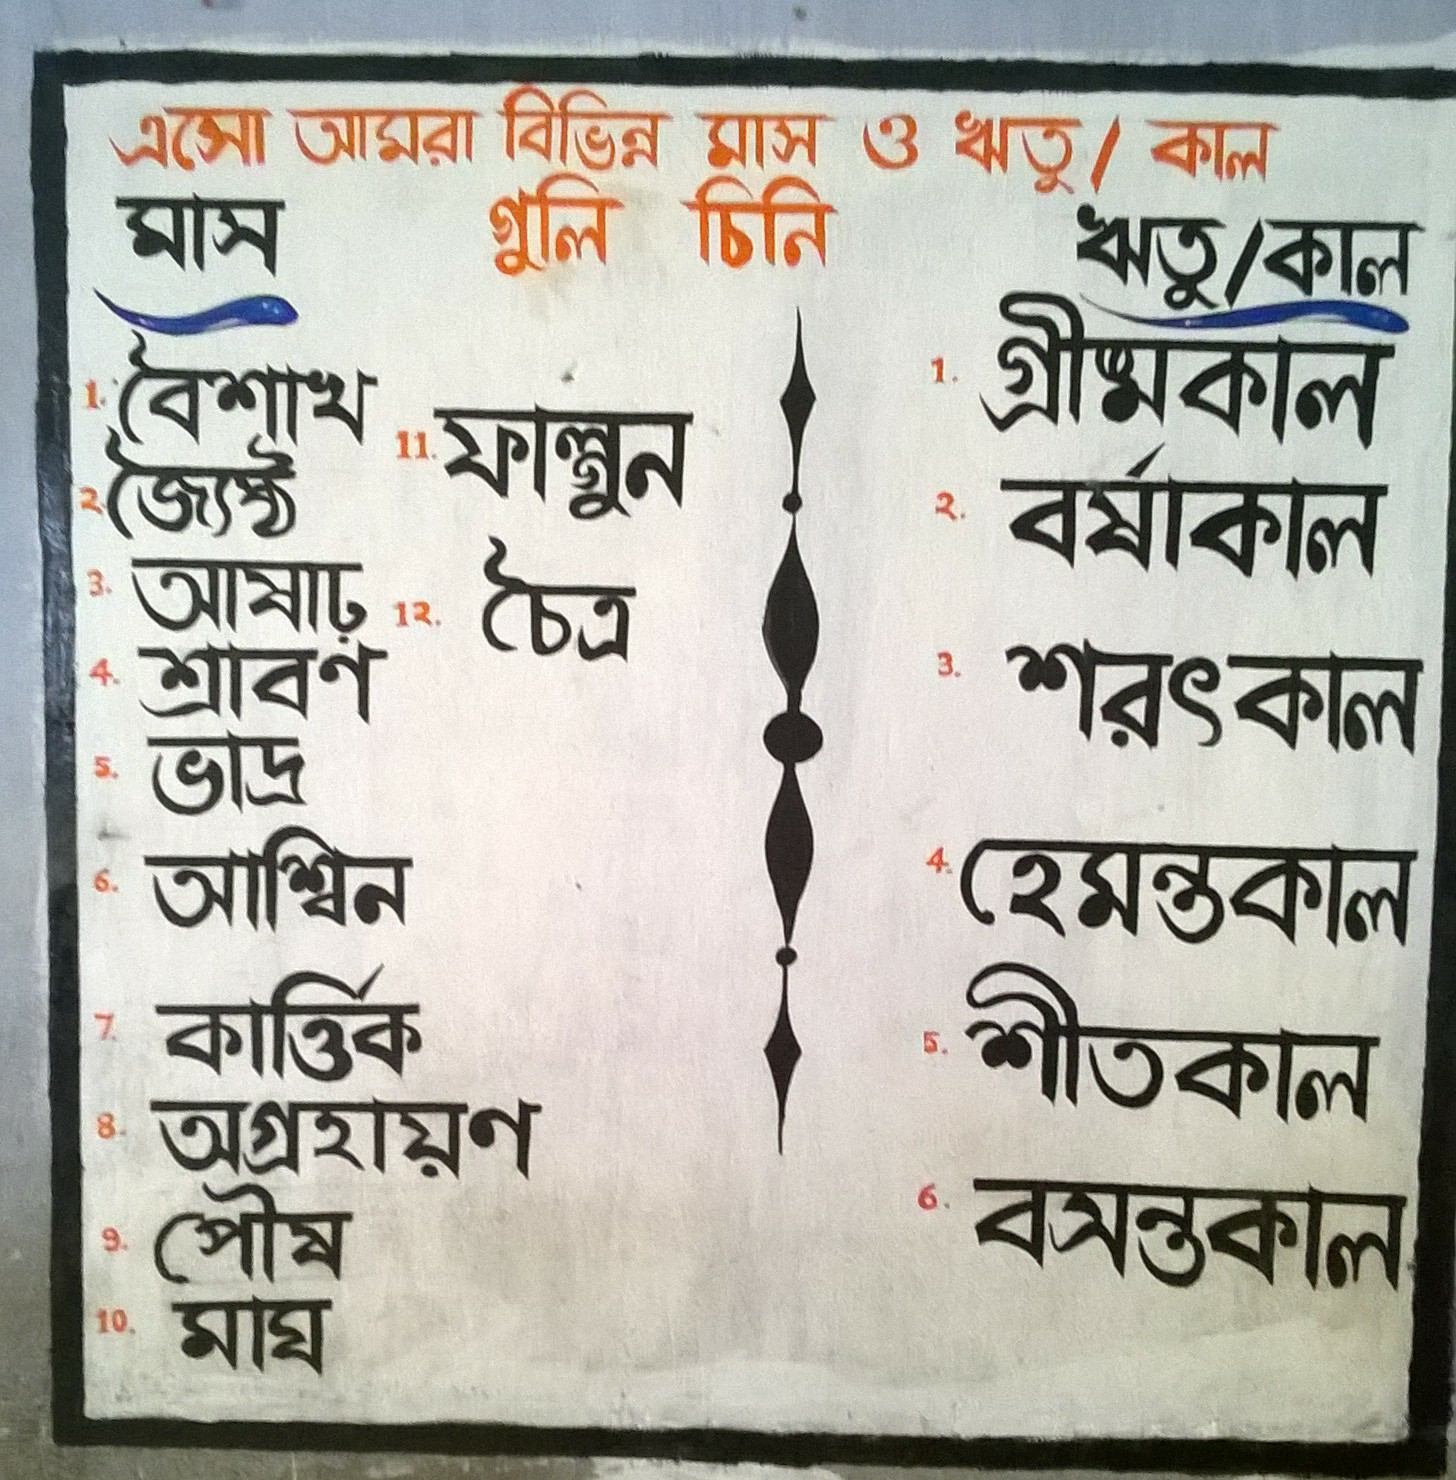 এসো আমরা বিভিন্ন মাস ও ঋতু/ কাল
গুলি চিনি
মাস
1. বৈশাখ
2. জ্যৈষ্ঠ
3. আষাঢ়
4. শ্রাবণ
5. ভাদ্র
6. আশ্বিন
7. কার্ত্তিক
8. অগ্রহায়ণ
9. পৌষ
10. মাঘ
11. ফাল্গুন
12. চৈত্র
ঋতু/কাল
1. গ্রীষ্মকাল
2. বর্ষাকাল
3. শরৎকাল
4. হেমন্তকাল
5. শীতকাল
6. বসন্তকাল